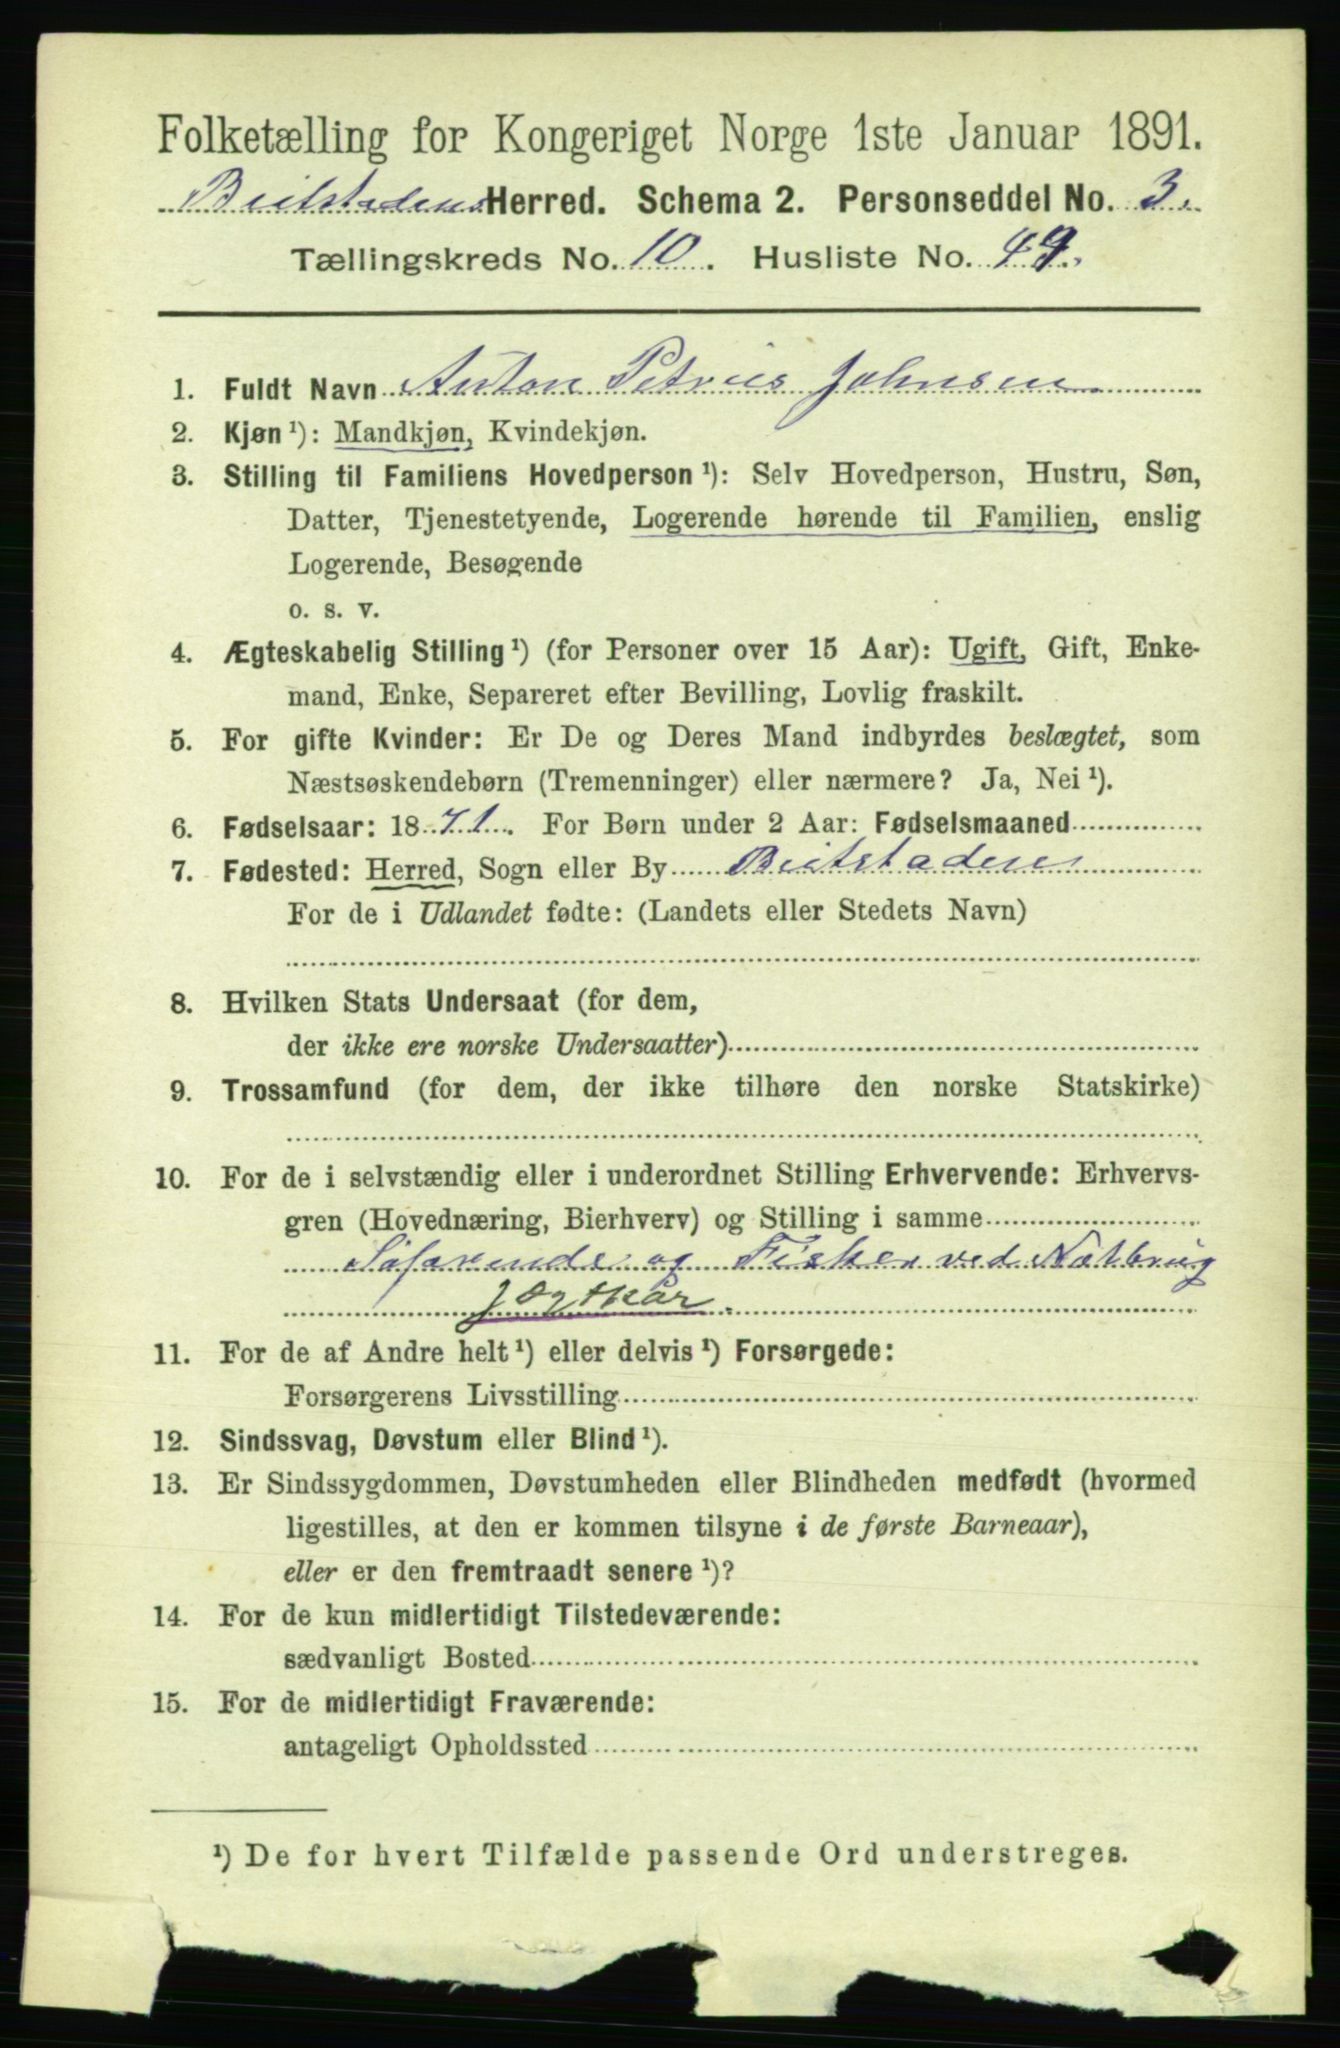 Folketælling for Kongeriget Norge 1ste Januar 1891.
Beitstadens Herred. Schema 2. Personseddel No. 3.
Tællingskreds No. 10. Husliste No. 49.
1. Fuldt Navn Anton Petrus Johnsen
2. Kjøn ¹): Mandkjøn, Kvindekjøn.
3. Stilling til Familiens Hovedperson ¹): Selv Hovedperson, Hustru, Søn,
Datter, Tjenestetyende, Logerende hørende til Familien, enslig
Logerende, Besøgende
o. s. v.
4. Ægteskabelig Stilling ¹) (for Personer over 15 Aar): Ugift, Gift, Enke-
mand, Enke, Separeret efter Bevilling, Lovlig fraskilt.
5. For gifte Kvinder: Er De og Deres Mand indbyrdes beslægtet, som
Næstsøskendebørn (Tremenninger) eller nærmere? Ja, Nei ¹).
6. Fødselsaar: 1871. For Børn under 2 Aar: Fødselsmaaned
7. Fødested: Herred, Sogn eller By Beitstaden
For de i Udlandet fødte: (Landets eller Stedets Navn)
8. Hvilken Stats Undersaat (for dem,
der ikke ere norske Undersaatter)
9. Trossamfund (for dem, der ikke tilhøre den norske Statskirke)
10. For de i selvstændig eller i underordnet Stilling Erhvervende: Erhvervs-
gren (Hovednæring, Bierhverv) og Stilling i samme
Søfarende og Fisker ved Notbrug
Jægtkar.
11. For de af Andre helt ¹) eller delvis ¹) Forsørgede:
Forsørgerens Livsstilling
12. Sindssvag, Døvstum eller Blind ¹).
13. Er Sindssygdommen, Døvstumheden eller Blindheden medfødt (hvormed
ligestilles, at den er kommen tilsyne i de første Barneaar),
eller er den fremtraadt senere ¹)?
14. For de kun midlertidigt Tilstedeværende:
sædvanligt Bosted
15. For de midlertidigt Fraværende:
antageligt Opholdssted
¹) De for hvert Tilfælde passende Ord understreges.